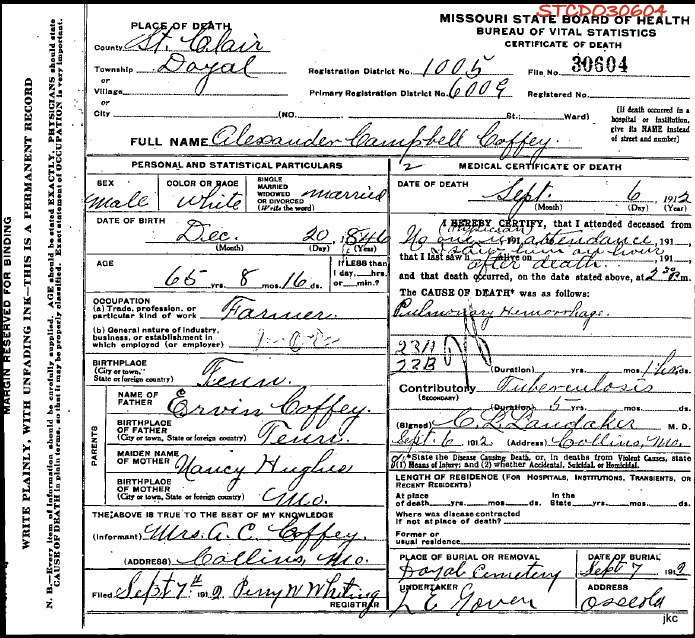 STCD030604
MISSOURI STATE BOARD OF HEALTH
BUREAU OF VITAL STATISTICS
CERTIFICATE OF DEATH
PLACE OF DEATH
County St. Clair
Township Doyal
or
Village
or
City (NO. St.; Ward)
Registration District No. 1005 File No. 30604
Primary Registration District No. 6009 Registered No.
[If death occurred in a
hospital or institution,
give its NAME instead
of street and number]
FULL NAME Alexander Campbell Coffey.
PERSONAL AND STATISTICAL PARTICULARS
SEX Male
COLOR OR RACE White
SINGLE
MARRIED
WIDOWED
OR DIVORCED
(Write the word) married
DATE OF BIRTH
Dec. 20, 1846
(Month) (Day) (Year)
AGE
65 yrs. 8 mos. 16 ds.
If LESS than
1 day,....hrs.
or....min.?
OCCUPATION
(a) Trade, profession, or
particular kind of work Farmer.
(b) General nature of industry,
business, or establishment in
which employed (or employer)
BIRTHPLACE
(City or town,
State or foreign country) Tenn.
PARENTS
NAME OF
FATHER Ervin Coffey.
BIRTHPLACE
OF FATHER
(City or town, State or foreign country) Tenn.
MAIDEN NAME
OF MOTHER Nancy Hughes
BIRTHPLACE
OF MOTHER
(City or town, State or foreign country) Mo.
THE ABOVE IS TRUE TO THE BEST OF MY KNOWLEDGE
(Informant) Mrs. A. C. Coffey.
(ADDRESS) Collins, Mo.
Filed Sept 7th 1912 Perry W Whiting
REGISTRAR
2 MEDICAL CERTIFICATE OF DEATH
DATE OF DEATH
Sept. 6, 1912
(Month) (Day) (Year)
I HEREBY CERTIFY, that I attended deceased from
physician
No one in attendance, 191
I saw him an hour
that I last saw h alive on 191
after death.
and that death occurred, on the date stated above, at 2 30 m.
The CAUSE OF DEATH* was as follows:
Pulmonary Hemorrhage.
23A
23B
(Duration) yrs. mos. 1 hr. ds.
Contributory Tuberculosis
(SECONDARY)
(Duration) 5 yrs. mos. ds.
(Signed) C. L. Landaker M. D.
Sept. 6, 1912 (Address) Collins, Mo.
*State the Disease Causing Death, or, in deaths from Violent Causes, state
(1) Means of Injury; and (2) whether Accidental, Suicidal, or Homicidal.
LENGTH OF RESIDENCE (FOR HOSPITALS, INSTITUTIONS, TRANSIENTS, OR
RECENT RESIDENTS)
At place
of death yrs. mos. ds.
In the
State yrs. mos. ds.
Where was disease contracted
if not at place of death?
Former or
usual residence
PLACE OF BURIAL OR REMOVAL
Doyal Cemetery
DATE OF BURIAL
Sept 7 1912
UNDERTAKER
ADDRESS
Osceola
jkc
MARGIN RESERVED FOR BINDING
WRITE PLAINLY, WITH UNFADING INK—THIS IS A PERMANENT RECORD
N. B.—Every item of information should be carefully supplied. AGE should be stated EXACTLY. PHYSICIANS should state
CAUSE OF DEATH in plain terms, so that it may be properly classified. Exact statement of OCCUPATION is very important.